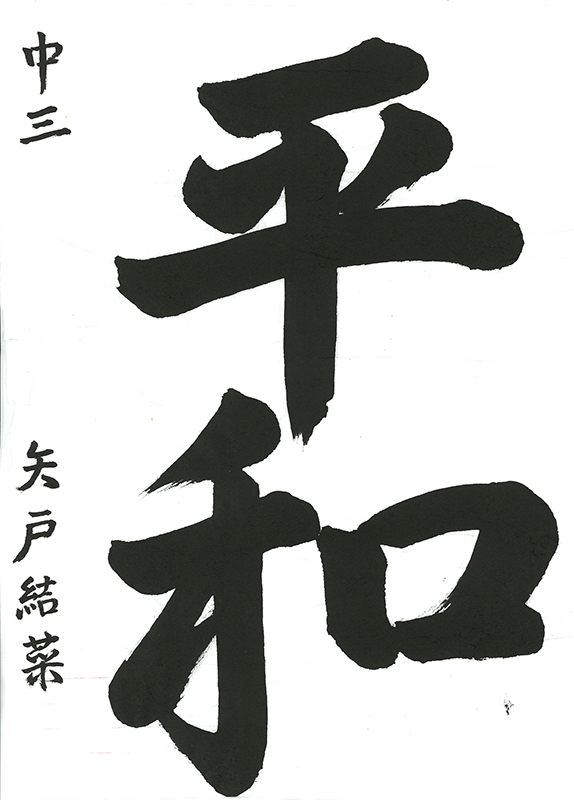 平和
中三 矢戸結菜